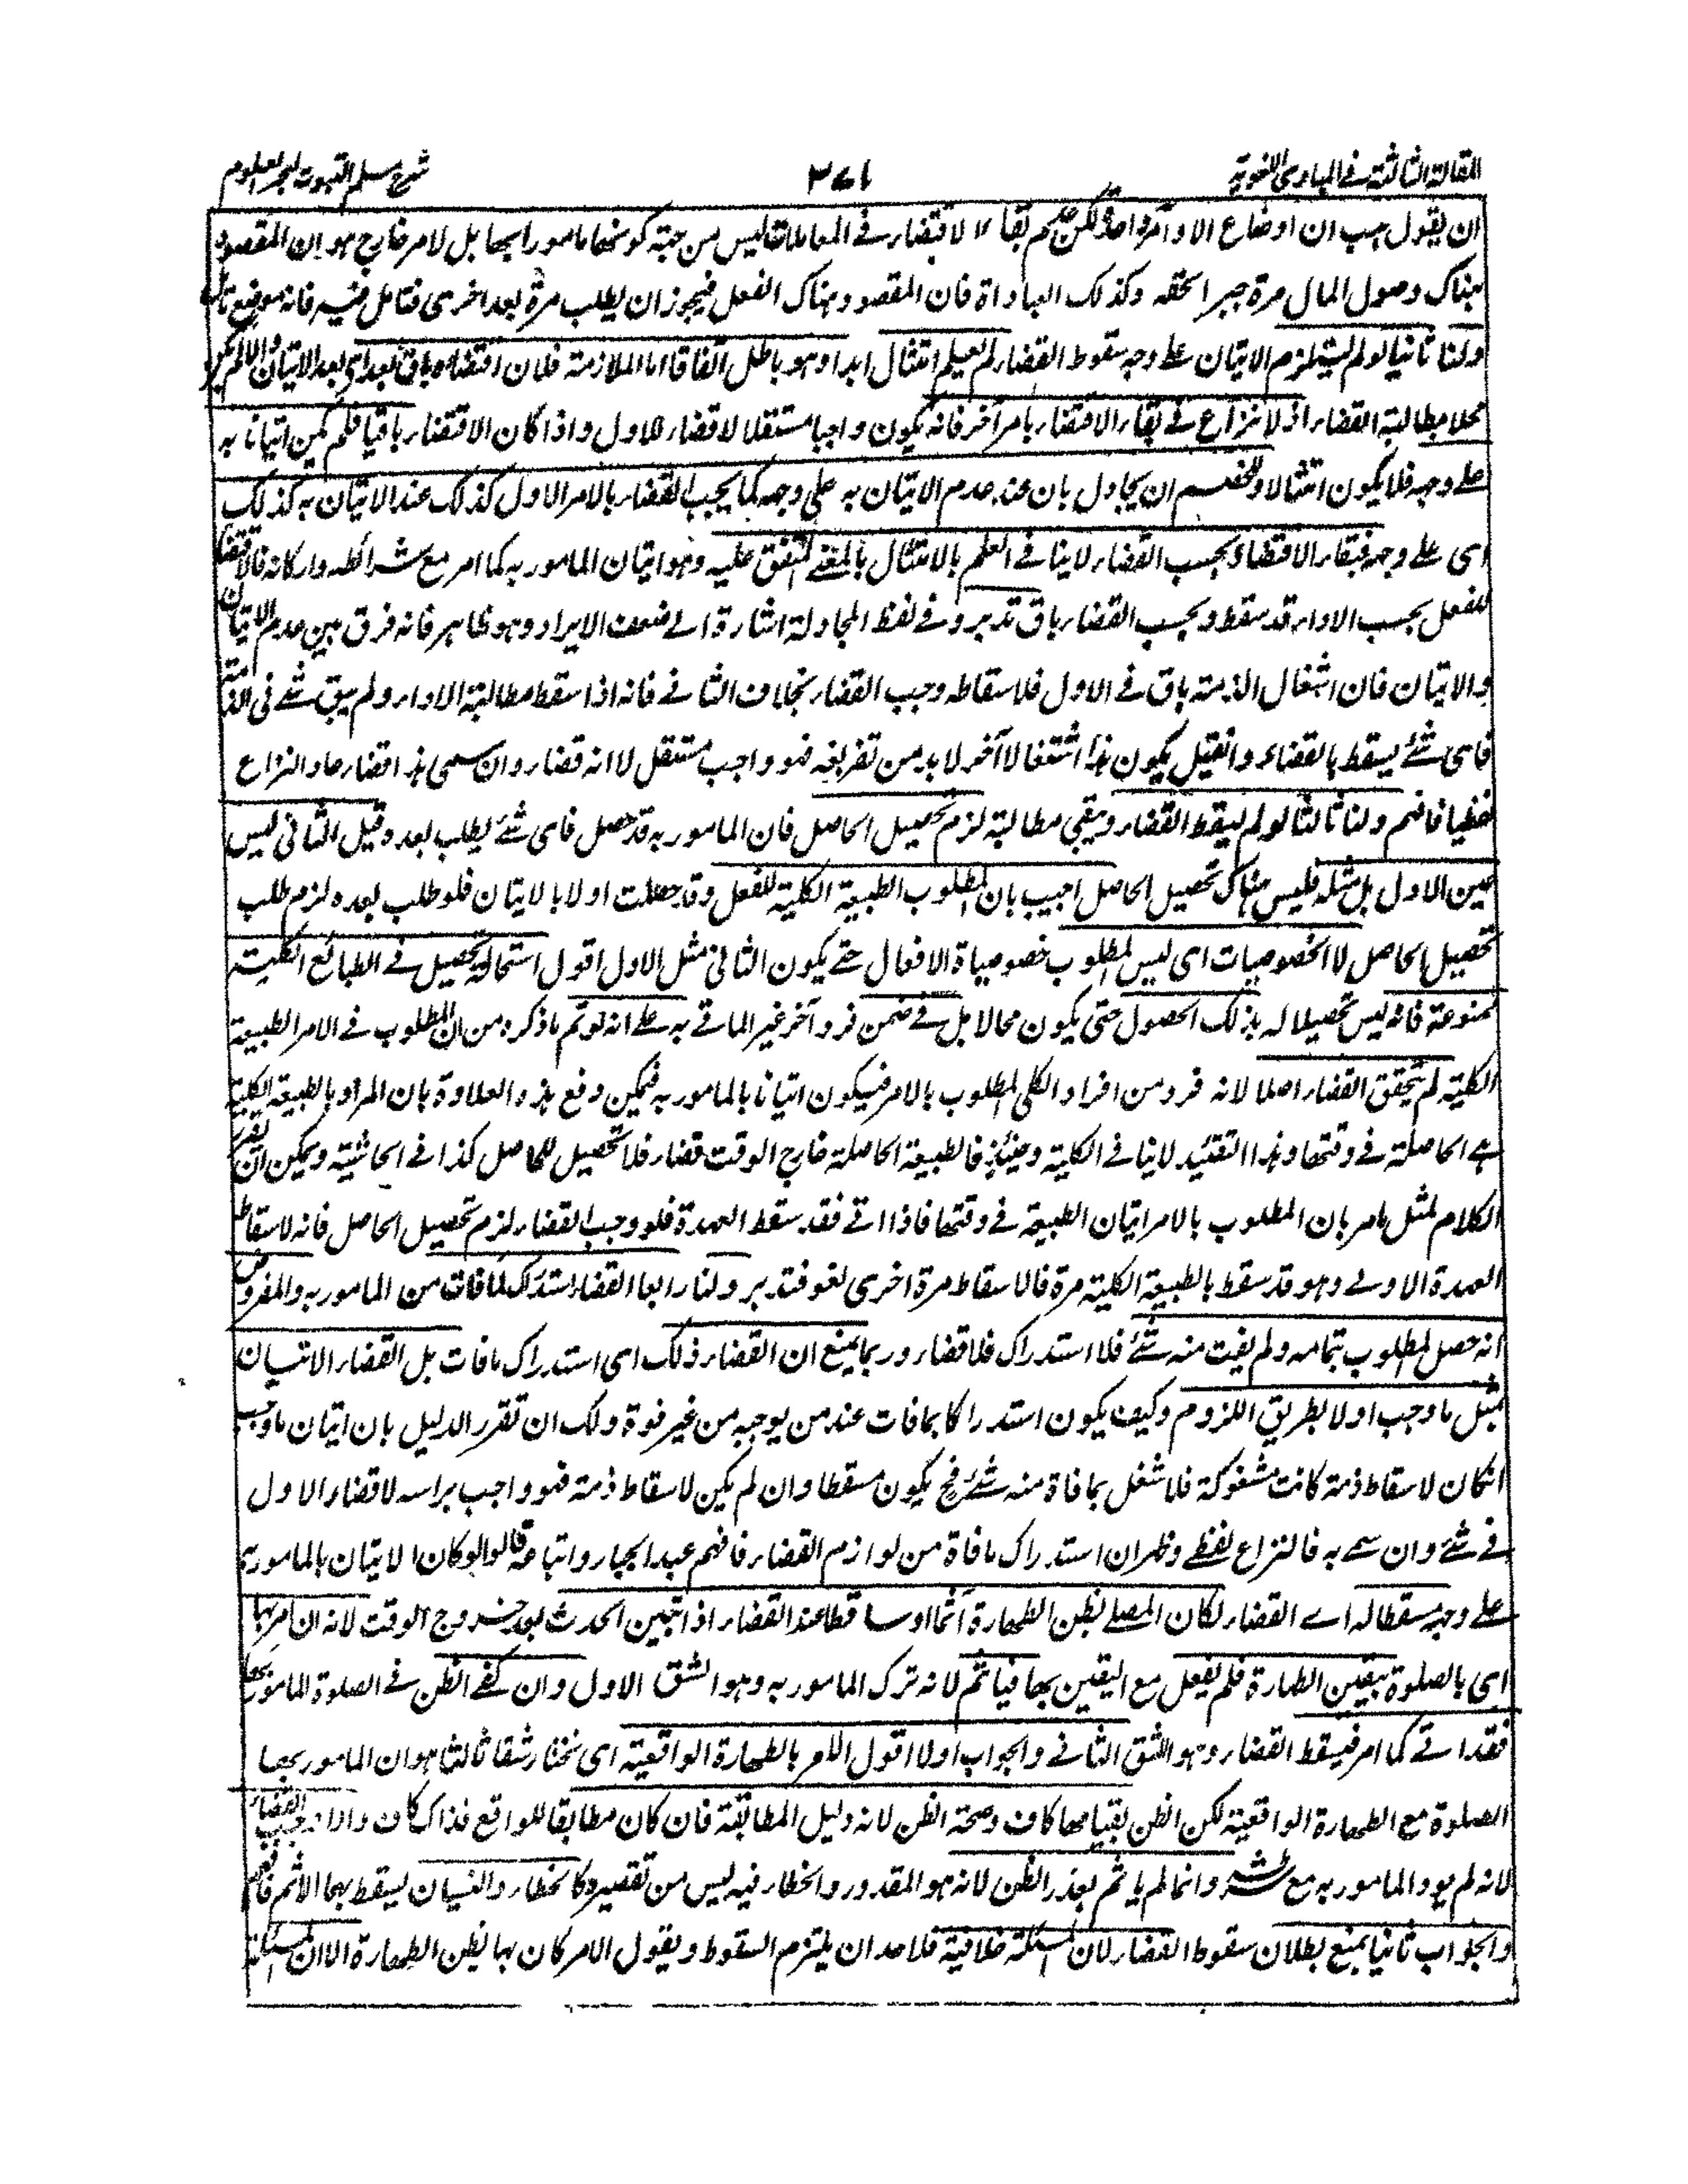 المقالة الثالثة في المبادي اللغوية
٣٧١
شرح مسلم الثبوت لبحر العلوم
ان يقول هب ان اوضاع الاوامر واحدة لكن عدم بقاء الاقتضاء في المعاملات ليس من جهة كونها مامورا بها بل لامر خارج هو ان المقصود
هناك وصول المال مرة جبرا لحقه وكذلك العبادات فان المقصود هناك الفعل فيجوز ان يطلب مرة بعد اخرى فتامل فيه فانه موضع تامل
ولنا ثانيا لو لم يستلزم الاتيان على وجه سقوط القضاء لم يعلم امتثال ابدا وهو باطل اتفاقا اما الملازمة فلان اقتضاءه باق بعد اي بعد الاتيان والا لم يكن
محلا مطالبة القضاء اذ لا نزاع في بقاء الاقتضاء بامر آخر فانه يكون واجبا مستقلا لا قضاء للاول واذا كان الاقتضاء باقيا فلم يكن اتيانا به
على وجه فلا يكون امتثالا وللخصم ان يجادل بان عند عدم الاتيان به على وجه كما يجب القضاء بالامر الاول كذلك عند الاتيان به كذلك
اى على وجه فبقاء الاقتضاء بحسب القضاء لا ينافي العلم بالامتثال بالمعنى المتفق عليه وهو اتيان المامور به كما امر مع شرائطه واركانه فالاقتضاء
للفعل بحسب الاداء قد سقط وبحسب القضاء باق تدبر وفي لفظ المجادلة اشارة الى ضعف الايراد وهو ظاهر فانه فرق بين عدم الاتيان
والاتيان فان اشتغال الذمة باق في الاول فلاسقاطه وجب القضاء بخلاف الثاني فانه اذا سقط مطالبة الاداء ولم يبق شئ في الذمة
فاى شئ يسقط بالقضاء وان قيل يكون هذا اشتغالا آخر لا بد من تفريغه فهو واجب مستقل لا انه قضاء وان سمى هذا قضاء عاد النزاع
لفظيا فافهم ولنا ثالثا لو لم يسقط القضاء ويبقى مطالبة لزم تحصيل الحاصل فان المامور به قد حصل فاى شئ يطلب بعد وقيل الثاني ليس
عين الاول بل مثله فليس هناك تحصيل الحاصل اجيب بان المطلوب الطبيعة الكلية للفعل وقد حصلت اولا بالاتيان فلو طلب بعده لزم طلب
تحصيل الحاصل لا الخصوصيات اى ليس المطلوب خصوصيات الافعال حتى يكون الثاني مثل الاول اقول استحالة تحصيل في الطبائع الكلية
ممنوعة فانه ليس تحصيلا له بذلك الحصول حتى يكون محالا بل في ضمن فرد آخر غير الماتي به على انه لو تم ما ذكره من ان المطلوب في الامر الطبيعة
الكلية لم يتحقق القضاء اصلا لانه فرد من افراد الكلى المطلوب بالامر فيكون اتيانا بالمامور به فيمكن دفع هذه العلاوة بان المراد بالطبيعة الكلية
هى الحاصلة في وقتها وهذا التقييد لا ينافي الكلية وحينئذ فالطبيعة الحاصلة خارج الوقت قضاء فلا تحصيل للحاصل كذا في الحاشية ويمكن ان يقرر
الكلام لمثل ما مر بان المطلوب بالامر اتيان الطبيعة في وقتها فاذا اتى فقد سقط العهدة فلو وجب القضاء لزم تحصيل الحاصل فانه لاسقاط
العهدة الاولى وهو قد سقط بالطبيعة الكلية مرة فالاسقاط مرة اخرى لغو فتدبر ولنا رابعا القضاء استدراك لما فات من المامور به والمفروض
انه حصل المطلوب بتمامه ولم يفت منه شئ فلا استدراك فلا قضاء وربما يمنع ان القضاء ذلك اى استدراك ما فات بل القضاء الاتيان
بمثل ما وجب اولا بطريق اللزوم وكيف يكون استدراكا بما فات عند من يوجبه من غير فوة ولك ان تقرر الدليل بان اتيان ما وجب
انكان لاسقاط ذمة كانت مشغولة فلا شغل بما فاة منه شئ فح يكون مسقطا وان لم يكن لاسقاط ذمة فهو واجب براسه لا قضاء الاول
في شئ وان سمى به فالنزاع لفظى وظهر ان استدراك ما فاة من لوازم القضاء فافهم عبد الجبار واتباعه قالوا لو كان الاتيان بالمامور به
على وجه مسقطا له اى القضاء لكان المصلى بظن الطهارة آثما او ساقطا عند القضاء اذا تبين الحدث بعد خروج الوقت لانه ان امر بها
اى بالصلوة بيقين الطهارة فلم يفعل مع اليقين بها فياثم لانه ترك المامور به وهو الشق الاول وان كفى الظن في الصلوة المامور بها
فقد اتى كما امر فيسقط القضاء وهو الشق الثاني والجواب اولا اقول الامر بالطهارة الواقعية اى نختار شقا ثالثا هو ان المامور بها
الصلوة مع الطهارة الواقعية لكن الظن بقيامها كاف وصحة الظن لانه دليل المطابقة فان كان مطابقا للواقع فذاك كاف والا وجب القضاء
لانه لم يود المامور به مع شرطه وانما لم ياثم بعذر الظن لانه هو المقدور والخطاء فيه ليس من تقصيره كالخطاء والنسيان يسقط بهما الاثم فافهم
والجواب ثانيا بمنع بطلان سقوط القضاء لان المسئلة خلافية فلاحد ان يلتزم السقوط ويقول الامر كان بها بظن الطهارة الا ان المسئلة